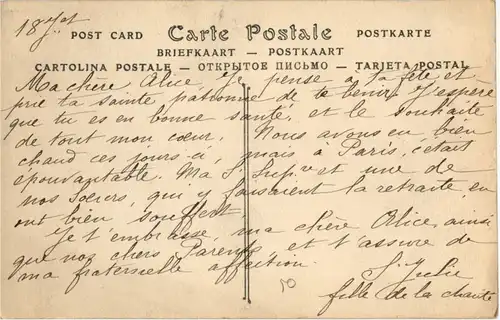 18 7bt
POST CARD Carte Postale POSTKARTE
BRIEFKAART — POSTKAART
CARTOLINA POSTALE — ОТКРЫТОЕ ПИСЬМО — TARJETA POSTAL
Ma chère Alice, Je pense à ta fête et
prie ta sainte patronne de te bénir. J'espère
que tu es en bonne santé, et le souhaite
de tout mon cœur. Nous avons eu bien
chaud ces jours-ci, mais à Paris, c'était
épouvantable. Ma S. Supre et une de
nos Sœurs, qui y faisaient la retraite, en
ont bien souffert.
Je t'embrasse, ma chère Alice, ainsi
que nos chers Parents et t'assure de
ma fraternelle affection.
S. Julie
fille de la charité
10